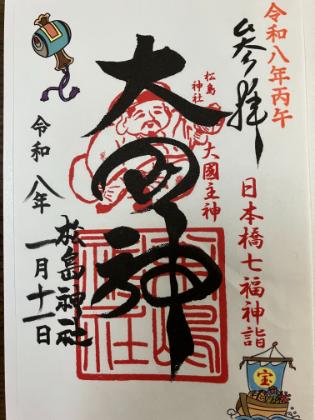 令和八年丙午
参拝
日本橋七福神詣
松島
神社
大國主神
大国神
松島神社
令和八年一月十一日
宝